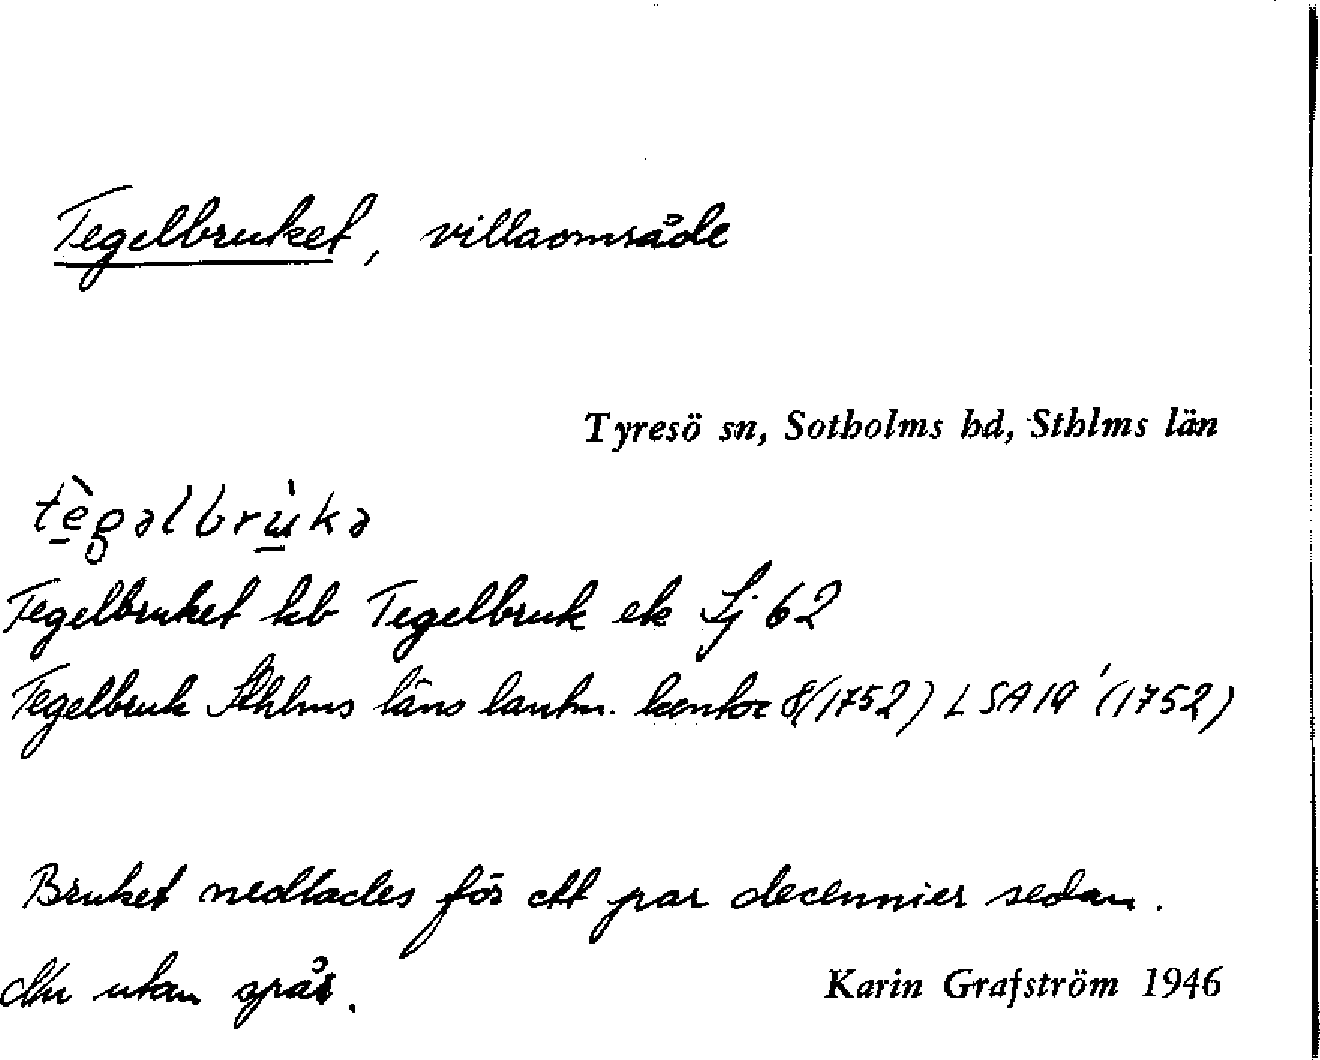 Tegelbruket, villaområde
Tyresö sn, Sotholms hd, Sthlms län
tègəlbrùkə
Tegelbruket kb Tegelbruk ek Lj 62
Tegelbruk Sthlms läns lantm. kontor 8 (1752) LSA 19' (1752)
Bruket nedlades för ett par decennier sedan.
Nu utan spår.
Karin Grafström 1946